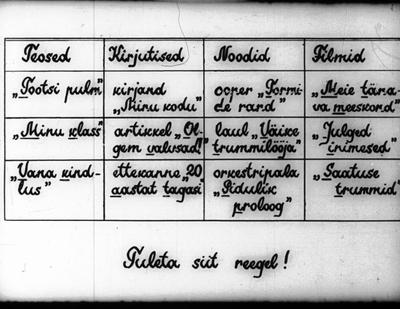 Teosed Kirjutised Noodid Filmid
„Tootsi pulm" kirjand ooper „Tormi- „Meie tära-
„Minu kodu" de rand" va meeskond"
„Minu klass" artikkel „Ol- laul „Väike „Julged
gem valvsad!" trummilööja" inimesed"
„Vana kind- ettekanne „20 orkestripala „Saatuse
lus" aastat tagasi" „Pidulik trummid"
proloog"
Tuleta siit reegel!